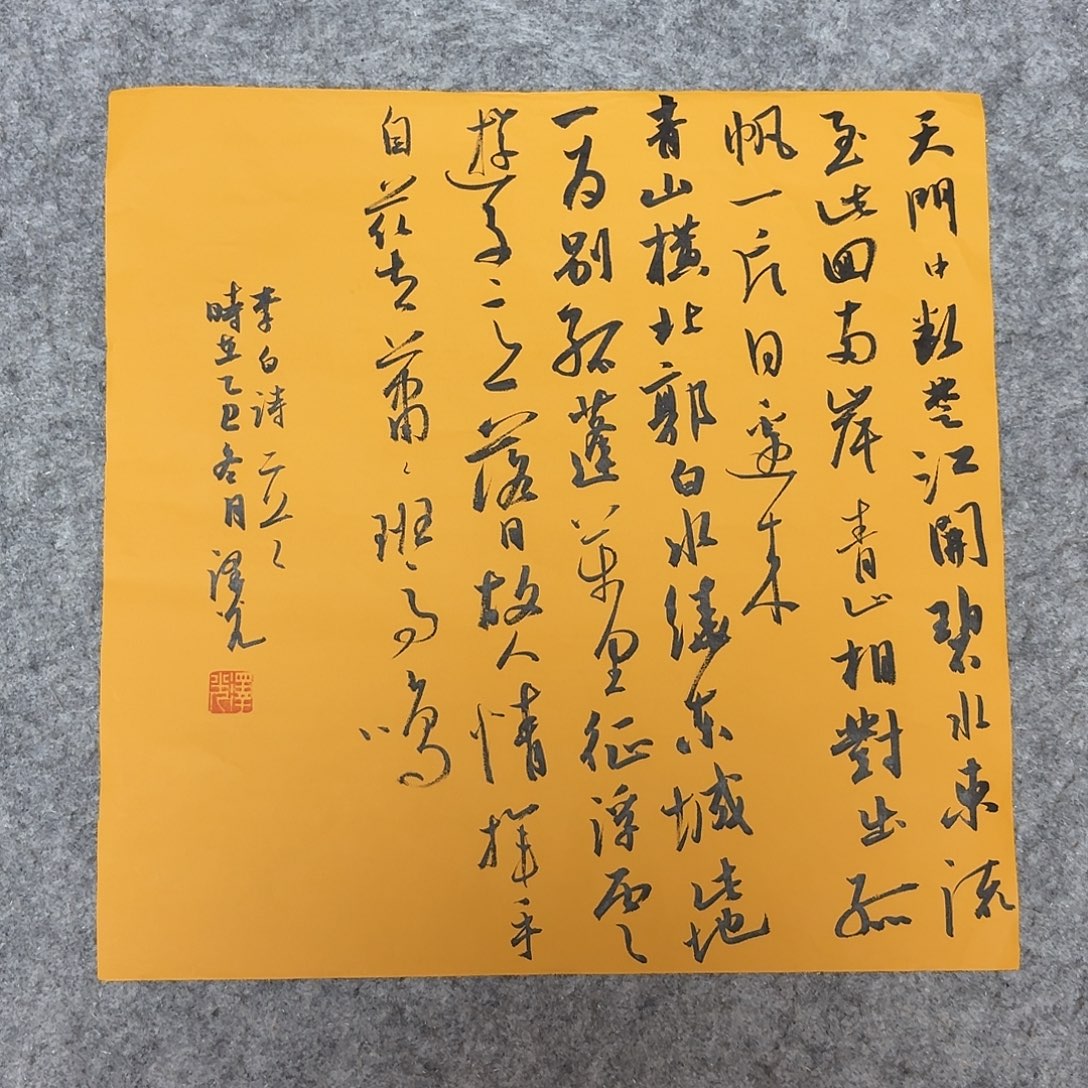 天門中斷楚江開碧水東流
至此回兩岸青山相對出孤
帆一片日邊来
青山橫北郭白水繞東城此地
一為別孤蓬萬里征浮雲
遊子意落日故人情揮手
自茲去蕭々班馬鳴
李白詩二首
時在乙巳冬月澤光